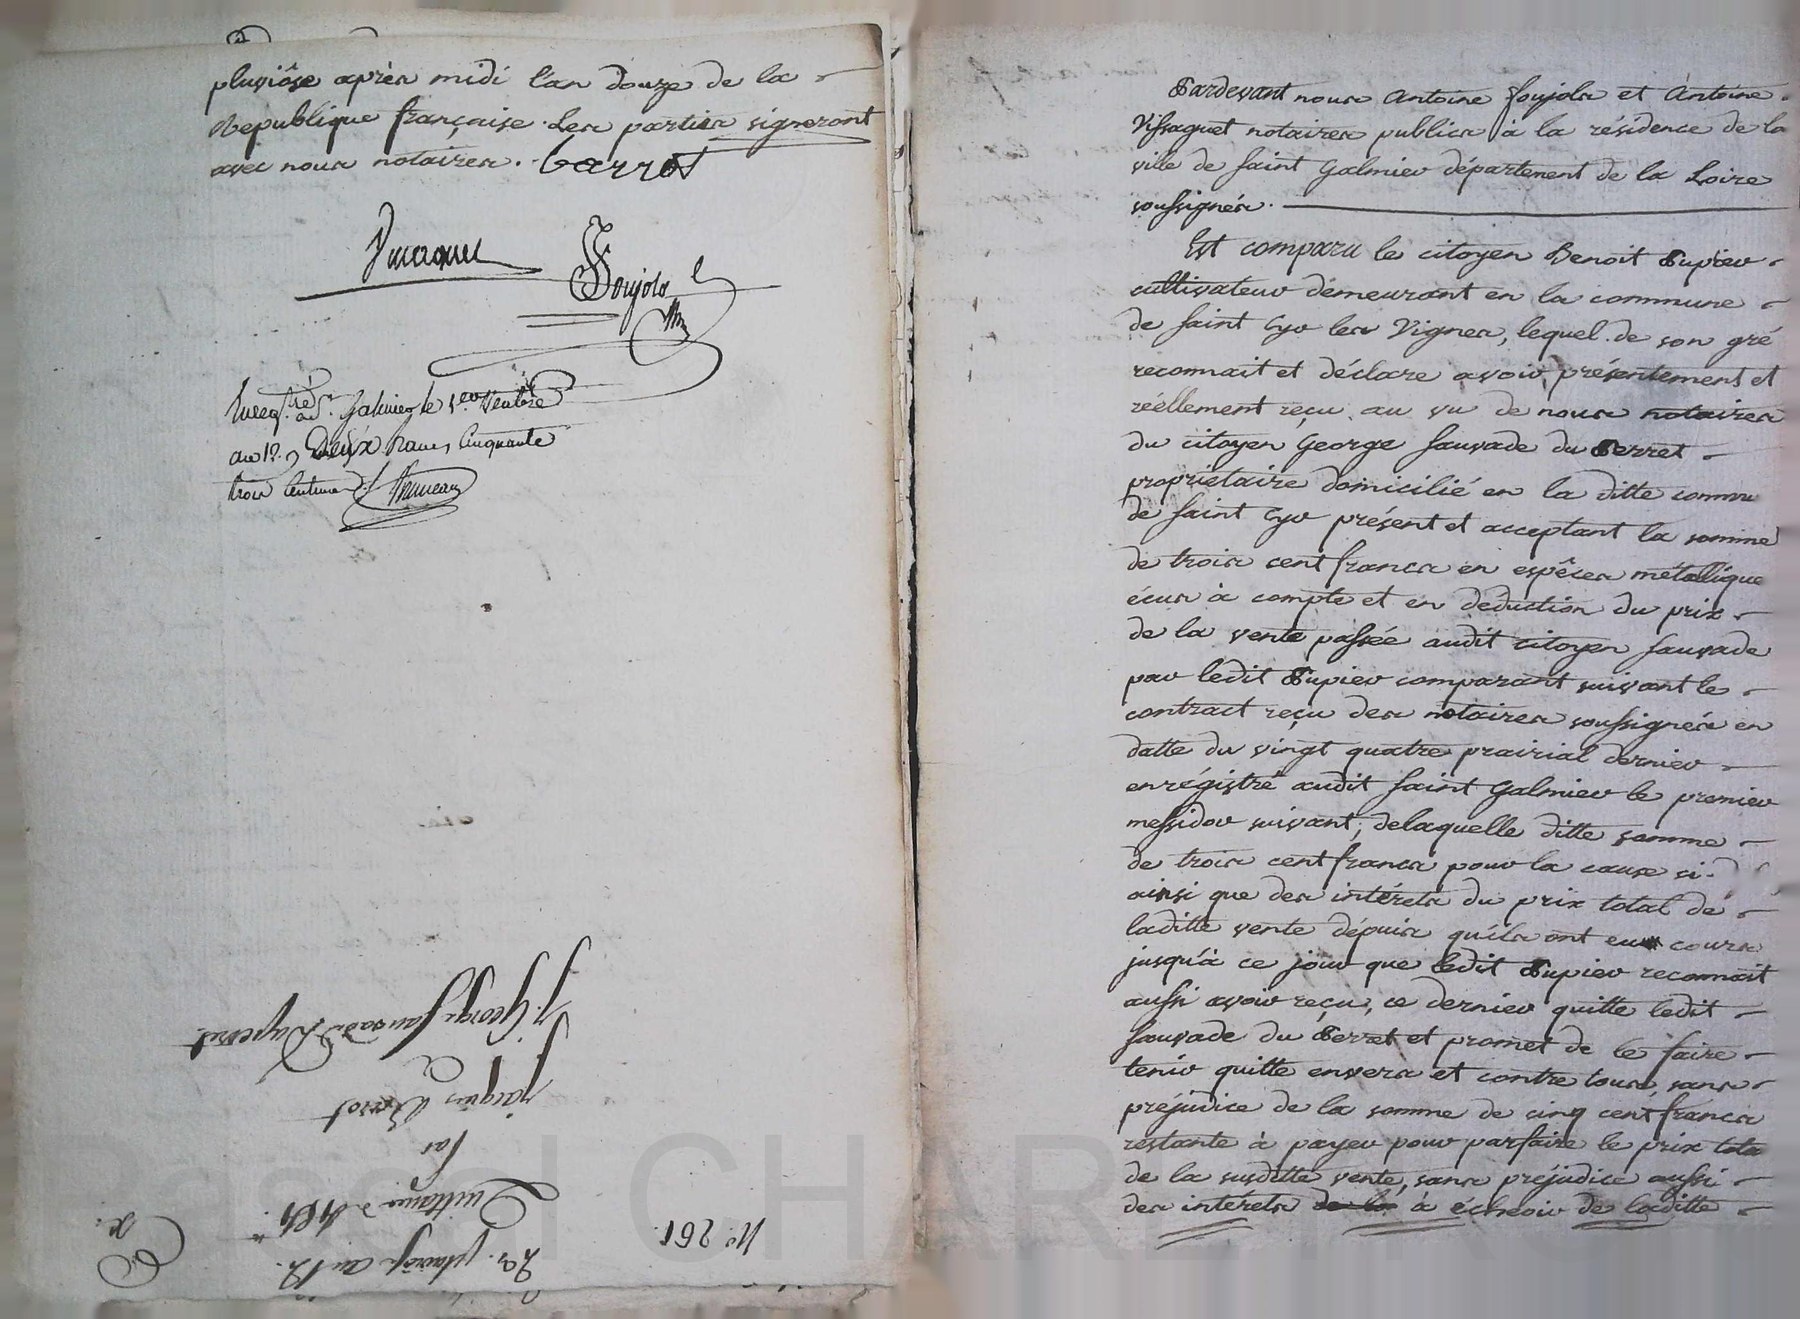 pluviôse après midi l'an douze de la
République française. Les parties signeront
avec nous notaires. Barrot
Vissaguet Soujols
Enregtré à St Galmier le 1er Ventôse
an 12. Deux francs Cinquante
trois Centimes
N° 261.
29 pluviôse an 12.
Quittance
par
jacques Barrot
à
George Sauvade Duperret
Pardevant nous Antoine Soujols et Antoine
Vissaguet notaires publics à la résidence de la
ville de Saint Galmier département de la Loire
soussignés.
Est comparu le citoyen Benoit Pupier
cultivateur demeurant en la commune
de Saint Cyr les Vignes, lequel de son gré
reconnait et déclare avoir présentement et
réellement reçu au vu de nous notaires
du citoyen George Sauvade du Perret
propriétaire domicilié en la ditte commu
de Saint Cyr présent et acceptant la somme
de trois cent francs en espêces métallique
écus à compte et en deduction du prix
de la vente passée audit citoyen Sauvade
par ledit Pupier comparant suivant le
contract reçu des notaires soussignés en
datte du vingt quatre prairial dernier
enrégistré audit Saint Galmier le premier
messidor suivant; delaquelle ditte somme
de trois cent francs pour la cause si-
ainsi que des intérets du prix total de
laditte vente dépuis qu'ils ont eu cours
jusqu'à ce jour que ledit Pupier reconnait
aussi avoir reçu, ce dernier quitte ledit
Sauvade du Perret et promet de le faire
tenir quitte envers et contre tous, sans
préjudice de la somme de cinq cent francs
restante à payer pour parfaire le prix tota
de la susditte vente, sans préjudice aussi
des intérets à écheoir de laditte